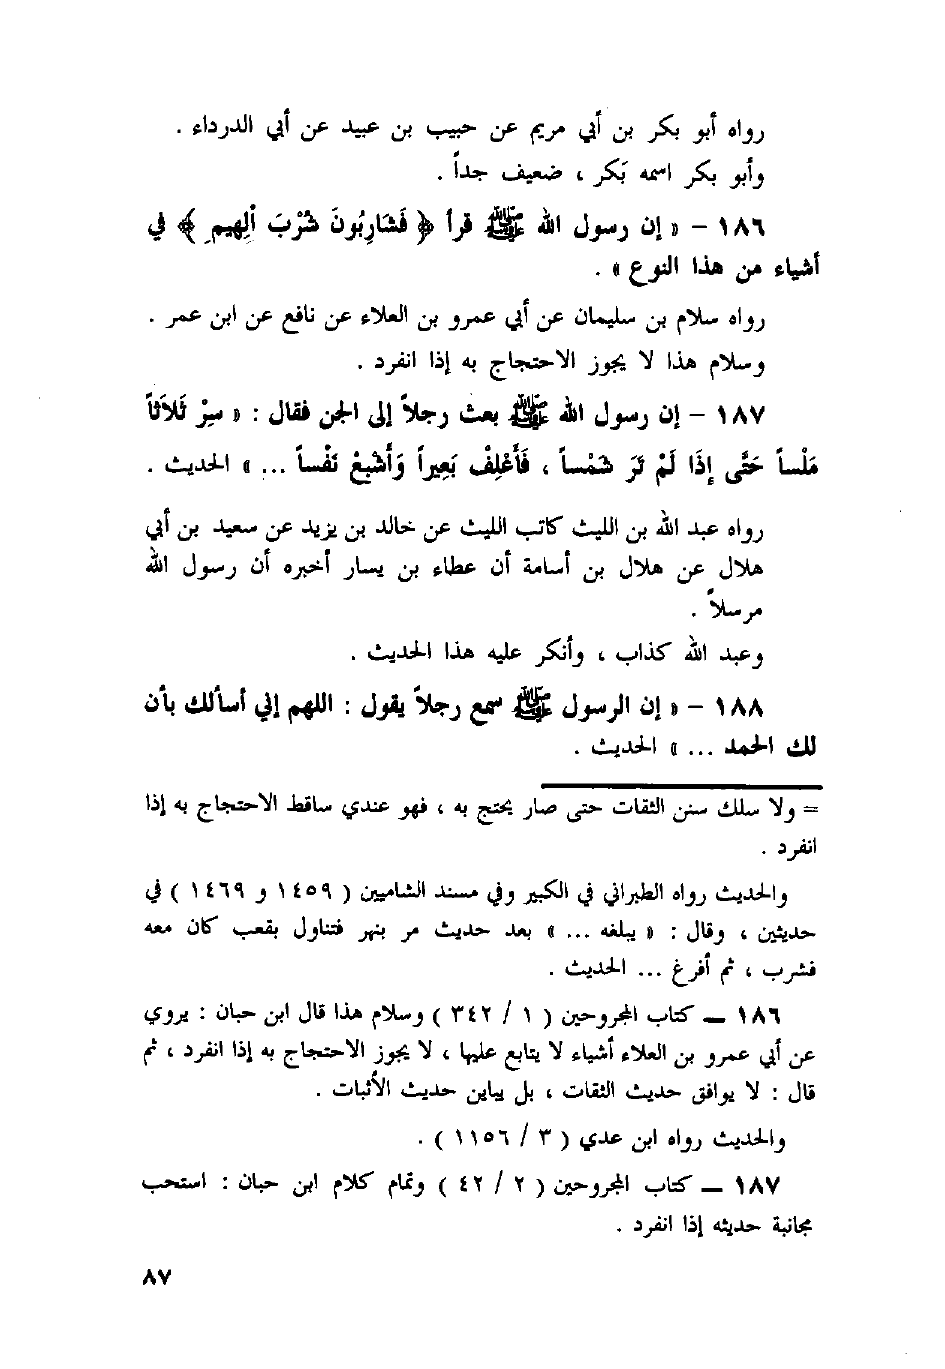 رواه أبو بكر بن أبي مريم عن حبيب بن عبيد عن أبي الدرداء .
وأبو بكر اسمه بَكر ، ضعيف جداً .
١٨٦ – « إن رسول الله ﷺ قرأ ﴿ فَشَارِبُونَ شُرْبَ ألِهيمِ ﴾ في
أشياء من هذا النوع » .
رواه سلام بن سليمان عن أبي عمرو بن العلاء عن نافع عن ابن عمر .
وسلام هذا لا يجوز الاحتجاج به إذا انفرد .
١٨٧ – إن رسول الله ﷺ بعث رجلاً إلى الجن فقال : « سِرْ ثَلاَثاً
مَلْساً حَتَّى إِذَا لَمْ تَرَ شَمْساً ، فَأَعْلِفْ بَعِيراً وَأَشْبِعْ نَفْساً ... » الحديث .
رواه عبد الله بن الليث كاتب الليث عن خالد بن يزيد عن سعيد بن أبي
هلال عن هلال بن أسامة أن عطاء بن يسار أخبره أن رسول الله
مرسلاً .
وعبد الله كذاب ، وأنكر عليه هذا الحديث .
١٨٨ – « إن الرسول ﷺ سمع رجلاً يقول : اللهم إني أسألك بأن
لك الحمد ... » الحديث .
= ولا سلك سنن الثقات حتى صار يحتج به ، فهو عندي ساقط الاحتجاج به إذا
انفرد .
والحديث رواه الطبراني في الكبير وفي مسند الشاميين ( ١٤٥٩ و ١٤٦٩ ) في
حديثين ، وقال : « يبلغه ... » بعد حديث مر بنهر فتناول بقعب كان معه
فشرب ، ثم أفرغ ... الحديث .
١٨٦ – كتاب المجروحين ( ١ / ٣٤٢ ) وسلام هذا قال ابن حبان : يروي
عن أبي عمرو بن العلاء أشياء لا يتابع عليها ، لا يجوز الاحتجاج به إذا انفرد ، ثم
قال : لا يوافق حديث الثقات ، بل يباين حديث الأثبات .
والحديث رواه ابن عدي ( ٣ / ١١٥٦ ) .
١٨٧ – كتاب المجروحين ( ٢ / ٤٢ ) وتمام كلام ابن حبان : استحب
مجانبة حديثه إذا انفرد .
٨٧